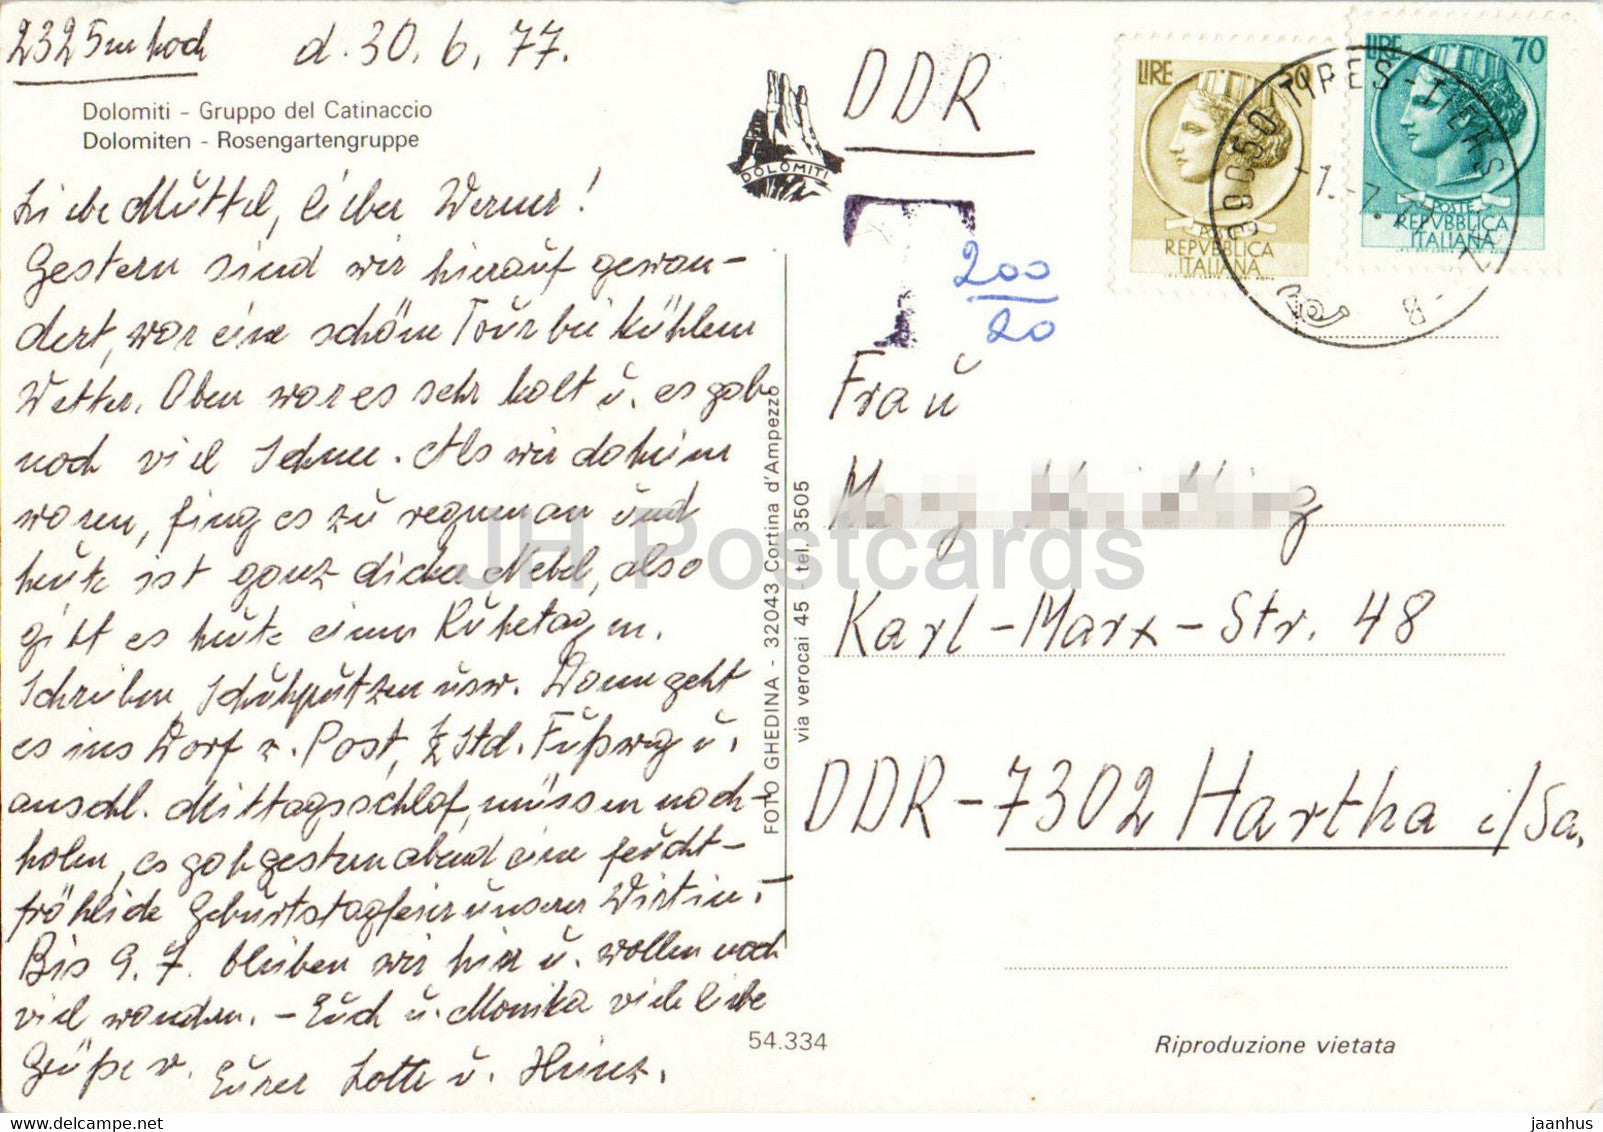 2325m hoch d. 30. 6. 77.
Dolomiti - Gruppo del Catinaccio
Dolomiten - Rosengartengruppe
Liebe Muttel, lieber Werner!
Gestern sind wir hierauf gewan-
dert, war eine schöne Tour bei kühlem
Wetter. Oben war es sehr kalt u. es gab
noch viel Schnee. Als wir daheim
waren, fing es zu regnen an und
heute ist ganz dicker Nebel, also
gibt es heute einen Ruhetag m.
Schreiben, Schuhputzen usw. Dann geht
es ins Dorf z. Post, ½ Std. Fußweg u.
anschl. Mittagsschlaf, müssen nach-
holen, es gab gestern abend eine feucht-
fröhliche Geburtstagsfeier unserer Wirtin. -
Bis 9. 7. bleiben wir hier u. wollen noch
viel wandern. - Euch u. Monika viele liebe
Grüße v. Eurer Lotte u. Heinz.
DOLOMITI
FOTO GHEDINA - 32043 Cortina d'Ampezzo
via verocai 45 - tel. 3505
54.334
DDR
T
200
20
LIRE 70
POSTE
REPVBBLICA
ITALIANA
LIRE
REPVBBLICA
ITALIANA
39050 TIRES - TIERS
Frau
Karl-Marx-Str. 48
DDR-7302 Hartha i/Sa.
Riproduzione vietata
JH Postcards
jaanhus